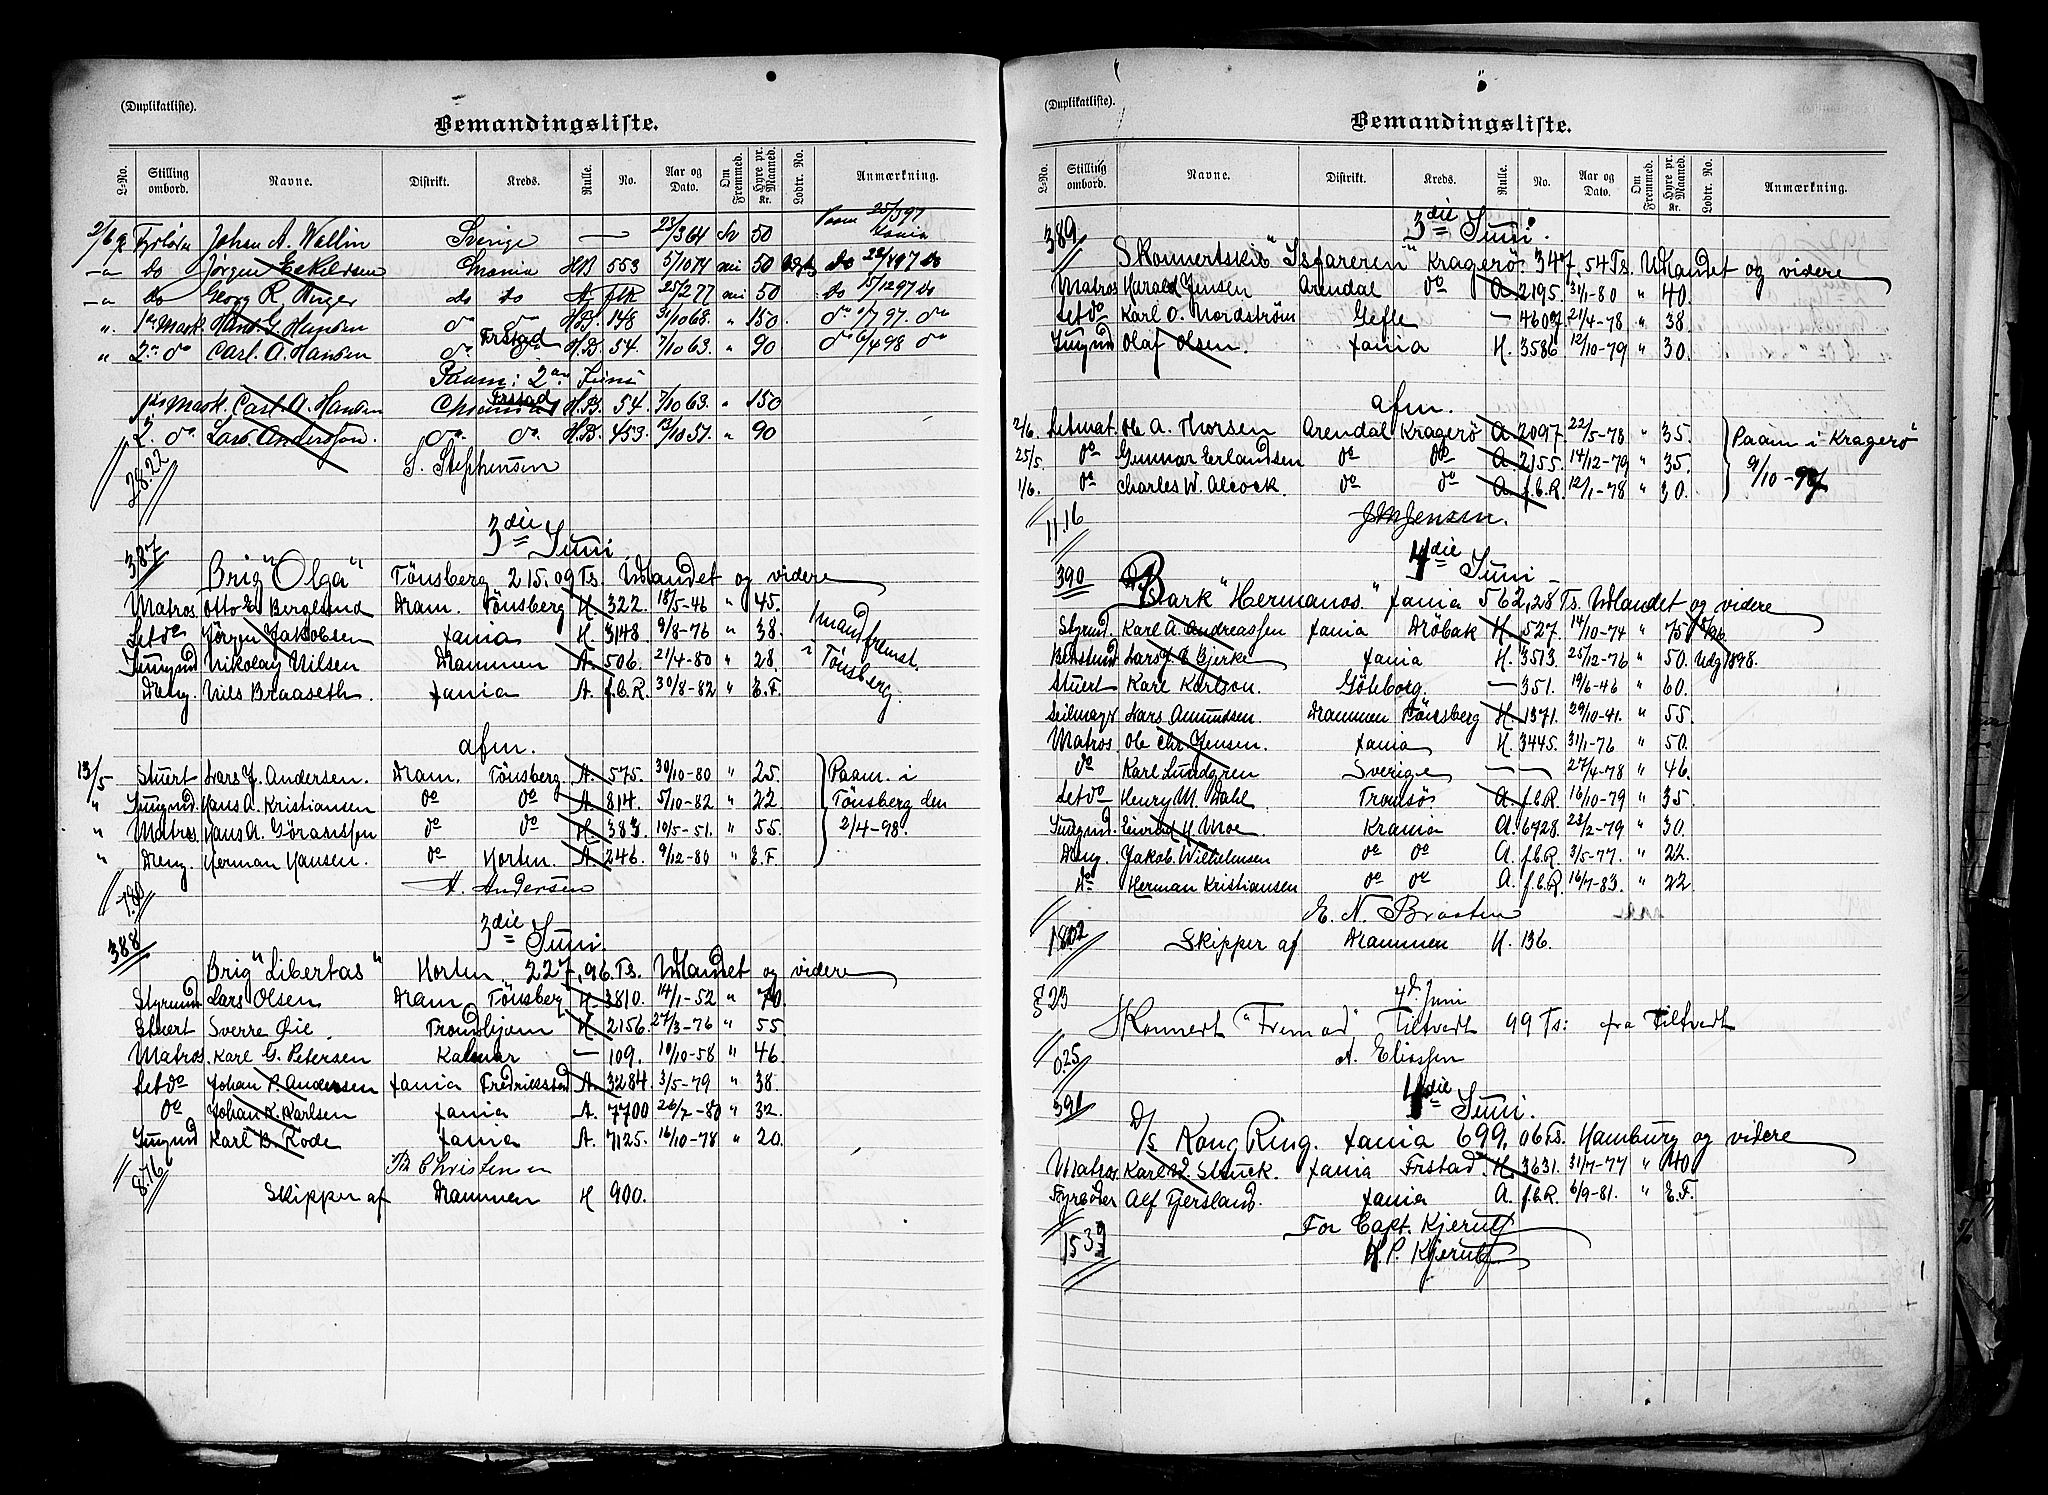 (Duplikatliste).
Bemandingsliste.
L-No. Stilling ombord. Navne. Distrikt. Kreds. Rulle. No. Aar og Dato. Om Fremmed. Hyre pr. Maaned. Kr. Lodtr. No. Anmærkning.
2/6 Johan A. Wallin Sverige — 23/3 64 50 Paam 25/5 97
— do Jørgen Eskildsen HB 553 5/10 74 50 do 22/4 97 do
— do Georg R. Unger do do A. 25/2 77 50 do 15/12 97 do
" 1ste Mask. Hans G. Hansen do do H.B. 148 31/10 68. " 150. do 1/7 97. do
" 2. do Carl. A. Hansen do Frstad H.B. 54. 7/10 63. " 90 do 4 98 do
Paam: 2den Juni
1ste Mask. Carl. A. Hansen Frstad H.B. 54. 7/10 63. " 150
2. do Lars Andersson. do. do. H.B. 453. 13/10 51. " 90
S. Stephensen
28.22
3die Juni
387
Brig "Olga" Tönsberg 215.09 Ts. Udlandet og videre
Matros Otto E. Berglund Dram. Tönsberg H. 322. 18/5-46 " 45. 1 mand fremst. i Tönsberg.
Let do Jörgen Jakobsen Xania H. 3148. 9/8-76 " 38.
Jungmd Nikolay Nilsen Drammen A. 506. 21/4-80 " 28.
Dreng Nils Braaseth Xania A. f.C.R. 30/8-82 " E.F.
afm.
13/5 Stuert Lars J. Andersen. Dram. Tönsberg. A. 575. 30/10-80 " 25. Paam. i
" Jungmd. Hans A. Kristiansen do do A. 814. 5/10-82 " 22 Tönsberg den
" Matros. Hans A. Göranssen do do H. 383. 10/5-51. " 55. 2/4-98.
" Dreng Herman Hansen. do Horten. A. 246. 9/12-80 " E.F.
A. Andersen
7.80
3die Juni.
388
Brig "Libertas" Horten 227,96 Ts. Udlandet og videre
Styrmd Lars Olsen Dram Tönsberg H. 3810. 14/1-52 " 70.
Stuert Sverre Öie Trondhjem H. 2156. 27/3-76 " 55.
Matros. Karl G. Petersen Kalmar — 109. 10/10-58 " 46.
Let do Johan P. Andersen Xania Fredriksstad A. 3284. 3/5-79 " 38.
do Johan K. Karlsen Xania A. 7700 26/2-80 " 32.
Jungmd Karl B. Rode Xania A. 7125. 16/10-78 " 20.
Christensen
8.76
Skipper af Drammen H 900.
(Duplikatliste).
Bemandingsliste.
L-No. Stilling ombord. Navne. Distrikt. Kreds. Rulle. No. Aar og Dato. Om Fremmed. Hyre pr. Maaned. Kr. Lodtr. No. Anmærkning.
389
3die Juni.
Skonnertskib "Isfareren" Kragerö 347,54 Ts. Udlandet og videre
Matros Harald Jensen Arendal do A. 2195. 31/1-80 " 40.
Let do Karl O. Nordström Gefle — 4607. 21/4-78 " 38.
Jungmd Olaf Olsen. Xania H. 3586 12/10-79 " 30.
afm.
2/6. Letmat. Ole A. Thorsen Arendal Kragerö A. 2097. 22/5-78 " 35. Paam i Kragerö
25/5. do Gunnar Erlandsen do do A. 2155. 14/12-79 " 35. 9/10-97
1/6. do Charles W. Alcock. do do A. f.C.R. 12/1-78 " 30.
J M Jensen.
11.16
4die Juni
390
Bark "Hermanos." Xania 562,28 Ts. Udlandet og videre
Styrmd. Karl A. Andreassen Xania Dröbak H. 527. 14/10-74 " 75
Bestmd Lars J. E. Gjerke Xania H. 3513. 25/12-76 " 50. Udg 1898.
Stuert Karl Karlson. Göteborg. — 351. 19/6-46 " 60.
Seilmagr Lars Amundsen. Drammen Tönsberg H. 1371. 29/10-41. " 55.
Matros Ole Chr. Jensen. Xania H. 3445. 31/1-76 " 50.
do Karl Lundgren Sverige — — 27/4-78 " 46.
Let do Henry M. Dahl Tromsö A. f.C.R. 16/10-79 " 35.
Jungmd. H. Moe Krania A. 6928. 23/2-79 " 30.
Dreng. Jakob Wilhelmsen do do A. f.C.R. 3/5-77. " 22.
do Herman Kristiansen do do A. f.C.R. 16/7-83. " 22
E. N. Braaten
18.02
Skipper af Drammen H. 136.
§ 23
4d. Juni
Skonnert "Fremad" Tiltvedt 99 Ts: fra Tiltvedt
A. Eliassen
0.25
391
4die Juni.
D/s Kong Ring. Xania 699.06 Ts. Hamburg og videre
Matros Karl Struck. Xania Frstad. H. 3631. 31/7-77 " 40.
Fyrböder Alf Fjersland. Xania A. f.C.R. 6/9-81. " E.F.
For Capt. Kjerulf
H. P. Kjerulf
15.39